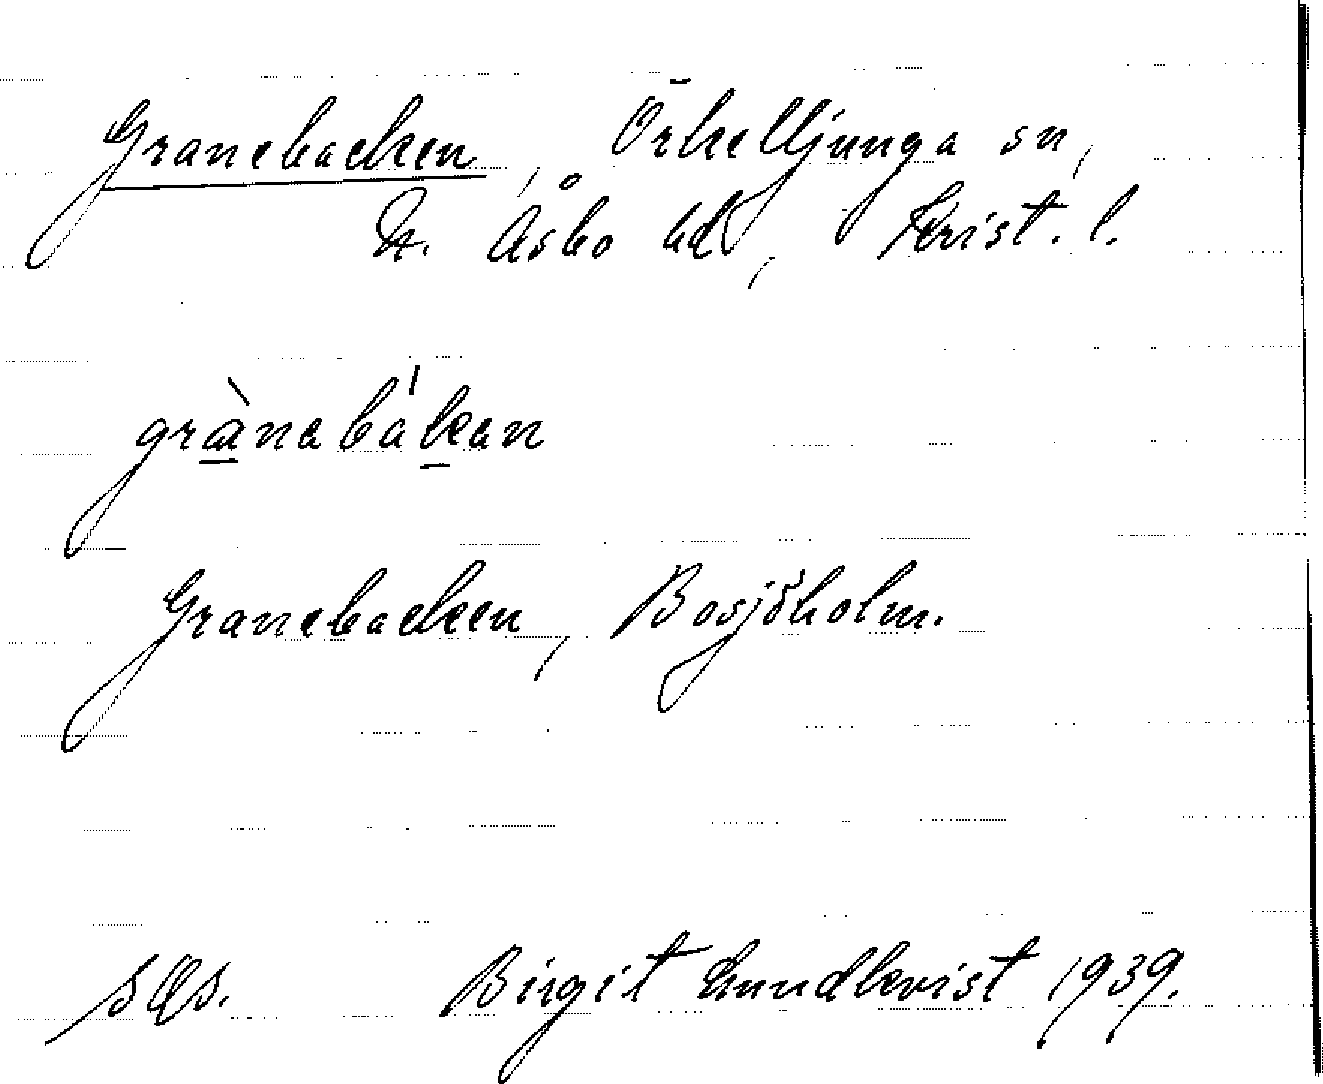 Granebacken, Örkelljunga sn,
N. Åsbo hd, Krist. l.
grànabákan
Granebacken, Bosjöholm.
Birgit Lundkvist 1939.